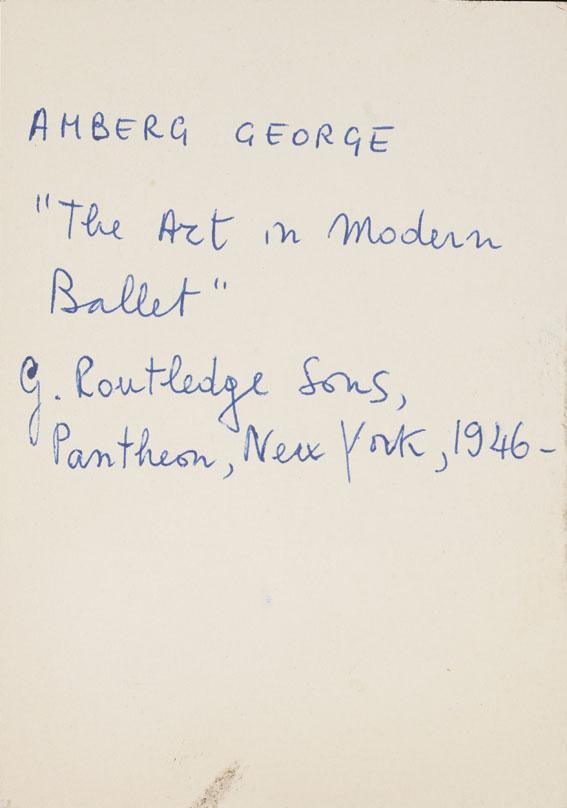 AMBERG GEORGE
"The Art in Modern
Ballet"
G. Routledge Sons,
Pantheon, New York, 1946-